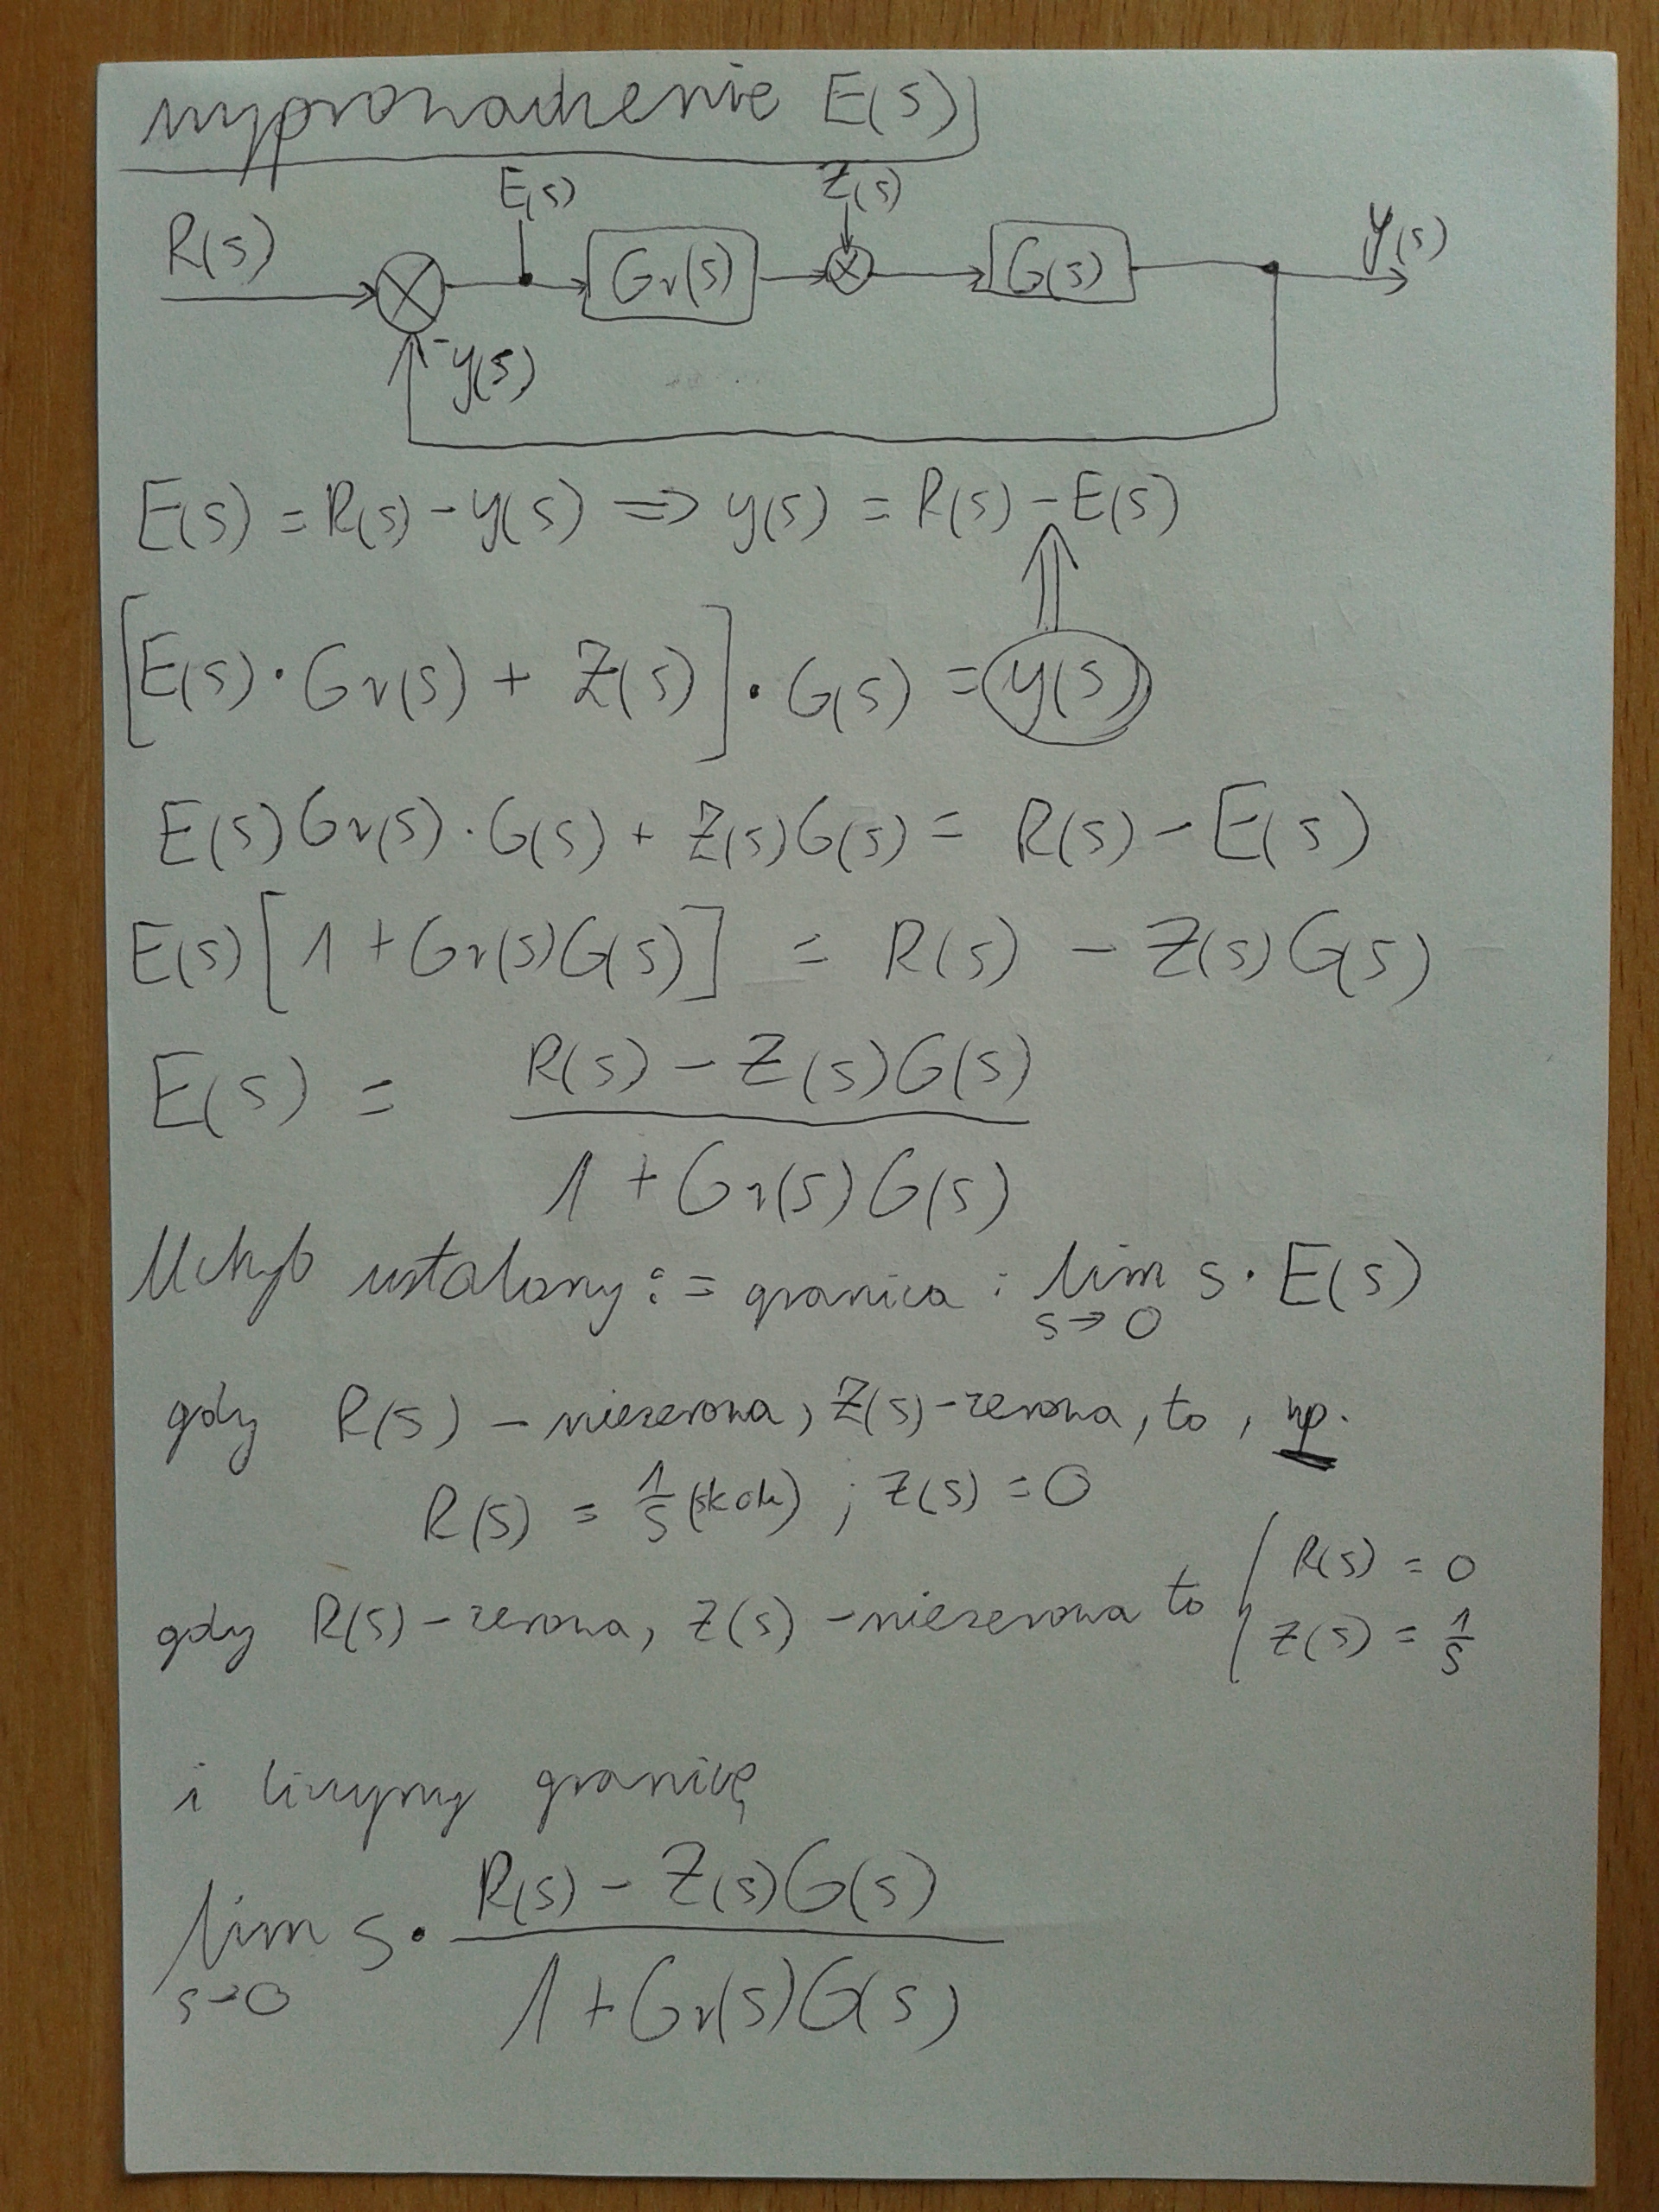 wyprowadzenie E(s)
E(s) Z(s)
R(s) Gr(s) G(s) y(s)
-y(s)
E(s) = R(s) - y(s) => y(s) = R(s) - E(s)
[E(s) · Gr(s) + Z(s)] · G(s) = y(s)
E(s)Gr(s) · G(s) + Z(s)G(s) = R(s) - E(s)
E(s)[1 + Gr(s)G(s)] = R(s) - Z(s)G(s)
E(s) = R(s) - Z(s)G(s)
1 + Gr(s)G(s)
Uchyb ustalony := granica : lim s · E(s)
s→0
gdy R(s) - niezerowa, Z(s) - zerowa, to, np.
R(s) = 1/s (skok) ; Z(s) = 0
gdy R(s) - zerowa, Z(s) - niezerowa to { R(s) = 0
Z(s) = 1/s
i liczymy granicę
lim s · R(s) - Z(s)G(s)
s→0 1 + Gr(s)G(s)